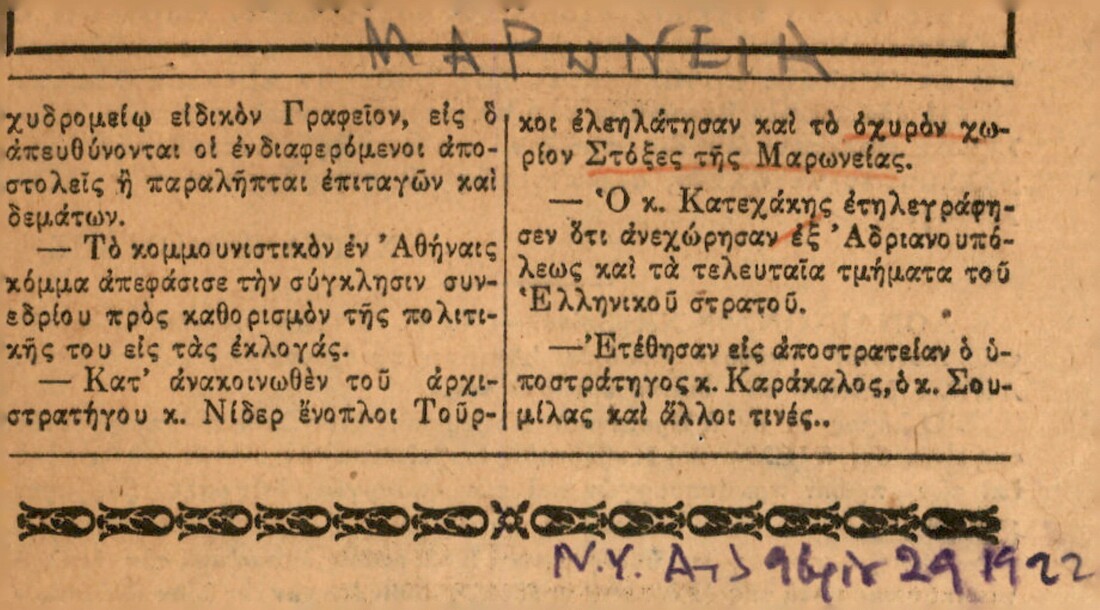 ΜΑΡΩΝΕΙΑ
χυδρομείῳ εἰδικὸν Γραφεῖον, εἰς ὃ
ἀπευθύνονται οἱ ἐνδιαφερόμενοι ἀπο-
στολεῖς ἢ παραλῆπται ἐπιταγῶν καὶ
δεμάτων.
— Τὸ κομμουνιστικὸν ἐν Ἀθήναις
κόμμα ἀπεφάσισε τὴν σύγκλησιν συν-
εδρίου πρὸς καθορισμὸν τῆς πολιτι-
κῆς του εἰς τὰς ἐκλογάς.
— Κατ' ἀνακοινωθὲν τοῦ ἀρχι-
στρατήγου κ. Νίδερ ἔνοπλοι Τοῦρ-
κοι ἐλεηλάτησαν καὶ τὸ ὀχυρὸν χω-
ρίον Στόξες τῆς Μαρωνείας.
— Ὁ κ. Κατεχάκης ἐτηλεγράφη-
σεν ὅτι ἀνεχώρησαν ἐξ Ἀδριανουπό-
λεως καὶ τὰ τελευταῖα τμήματα τοῦ
Ἑλληνικοῦ στρατοῦ.
— Ἐτέθησαν εἰς ἀποστρατείαν ὁ ὑ-
ποστράτηγος κ. Καράκαλος, ὁ κ. Σου-
μίλας καὶ ἄλλοι τινές..
N.Y. 29 1922